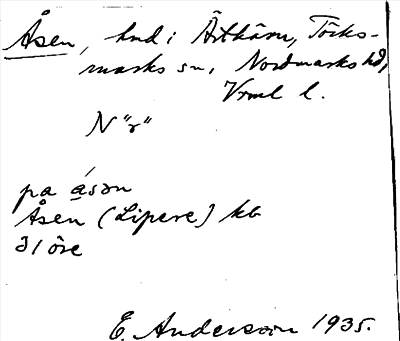 Åsen, hmd i Östhäm, Töcks-
marks sn, Nordmarks hd,
Vrml l.
N "r"
pa åsən
Åsen (Lipere) kb
31 öre
E. Anderson 1935.